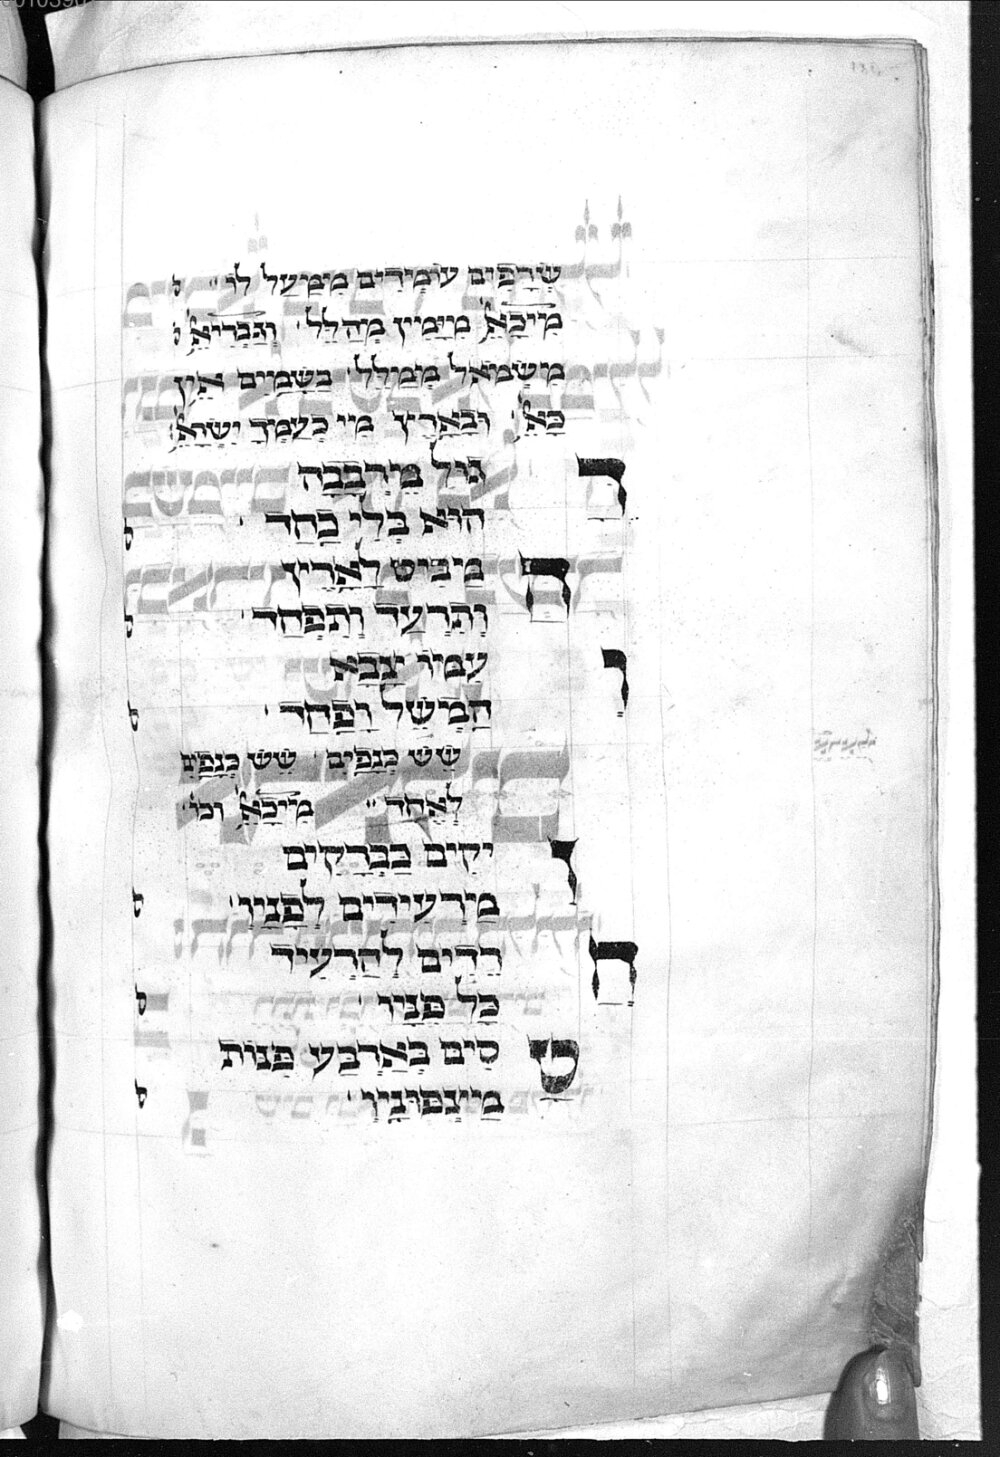 שְׂרָפִים עוֹמְדִים מִמַּעַל לוֹ ׃
מִיכָאֵ' מִיָּמִין מְהַלֵּל וְגַבְרִיאֵ'
מִשְּׂמֹאל מְמַלֵּל בַּשָּׁמַיִם אֵין
כָּאֵ' וּבָאָרֶץ מִי כְעַמְּךָ יִשְׂרָאֵ'
ד גוּל מֶרְכָּבָה
הוּא בְּלִי כַחַד
ה מַבִּיט לָאָרֶץ
וַתִּרְעַד וַתִּפְחַד
ו עִמּוֹ יִצְבָּא
הַמְשֵׁל וָפַחַד
שֵׁשׁ כְּנָפַיִם שֵׁשׁ כְּנָפַיִם
לְאֶחָד ׃ מִיכָאֵ' וכו'
ז יקִים בַּבְּרָקִים
מַרְעִידִים לְפָנָיו
ח דָּרִים לְהַרְעִיד
כָּל פָּנָיו
ט סִים בְּאַרְבַּע פִּנּוֹת
מִצְּפוּנָיו